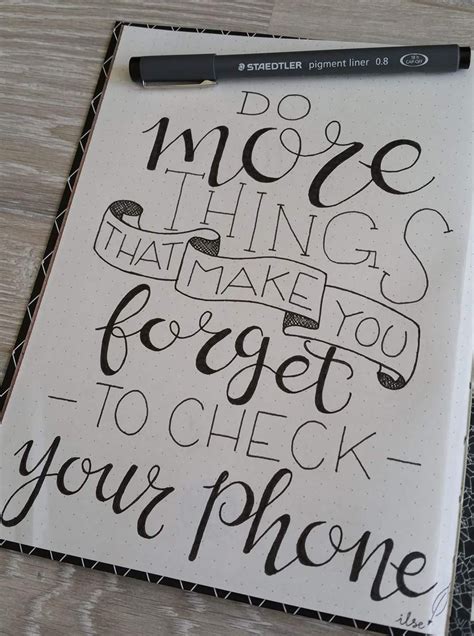 STAEDTLER pigment liner 0.8
DO
more
THINGS
THAT MAKE YOU
forget
– TO CHECK –
your phone
ilse